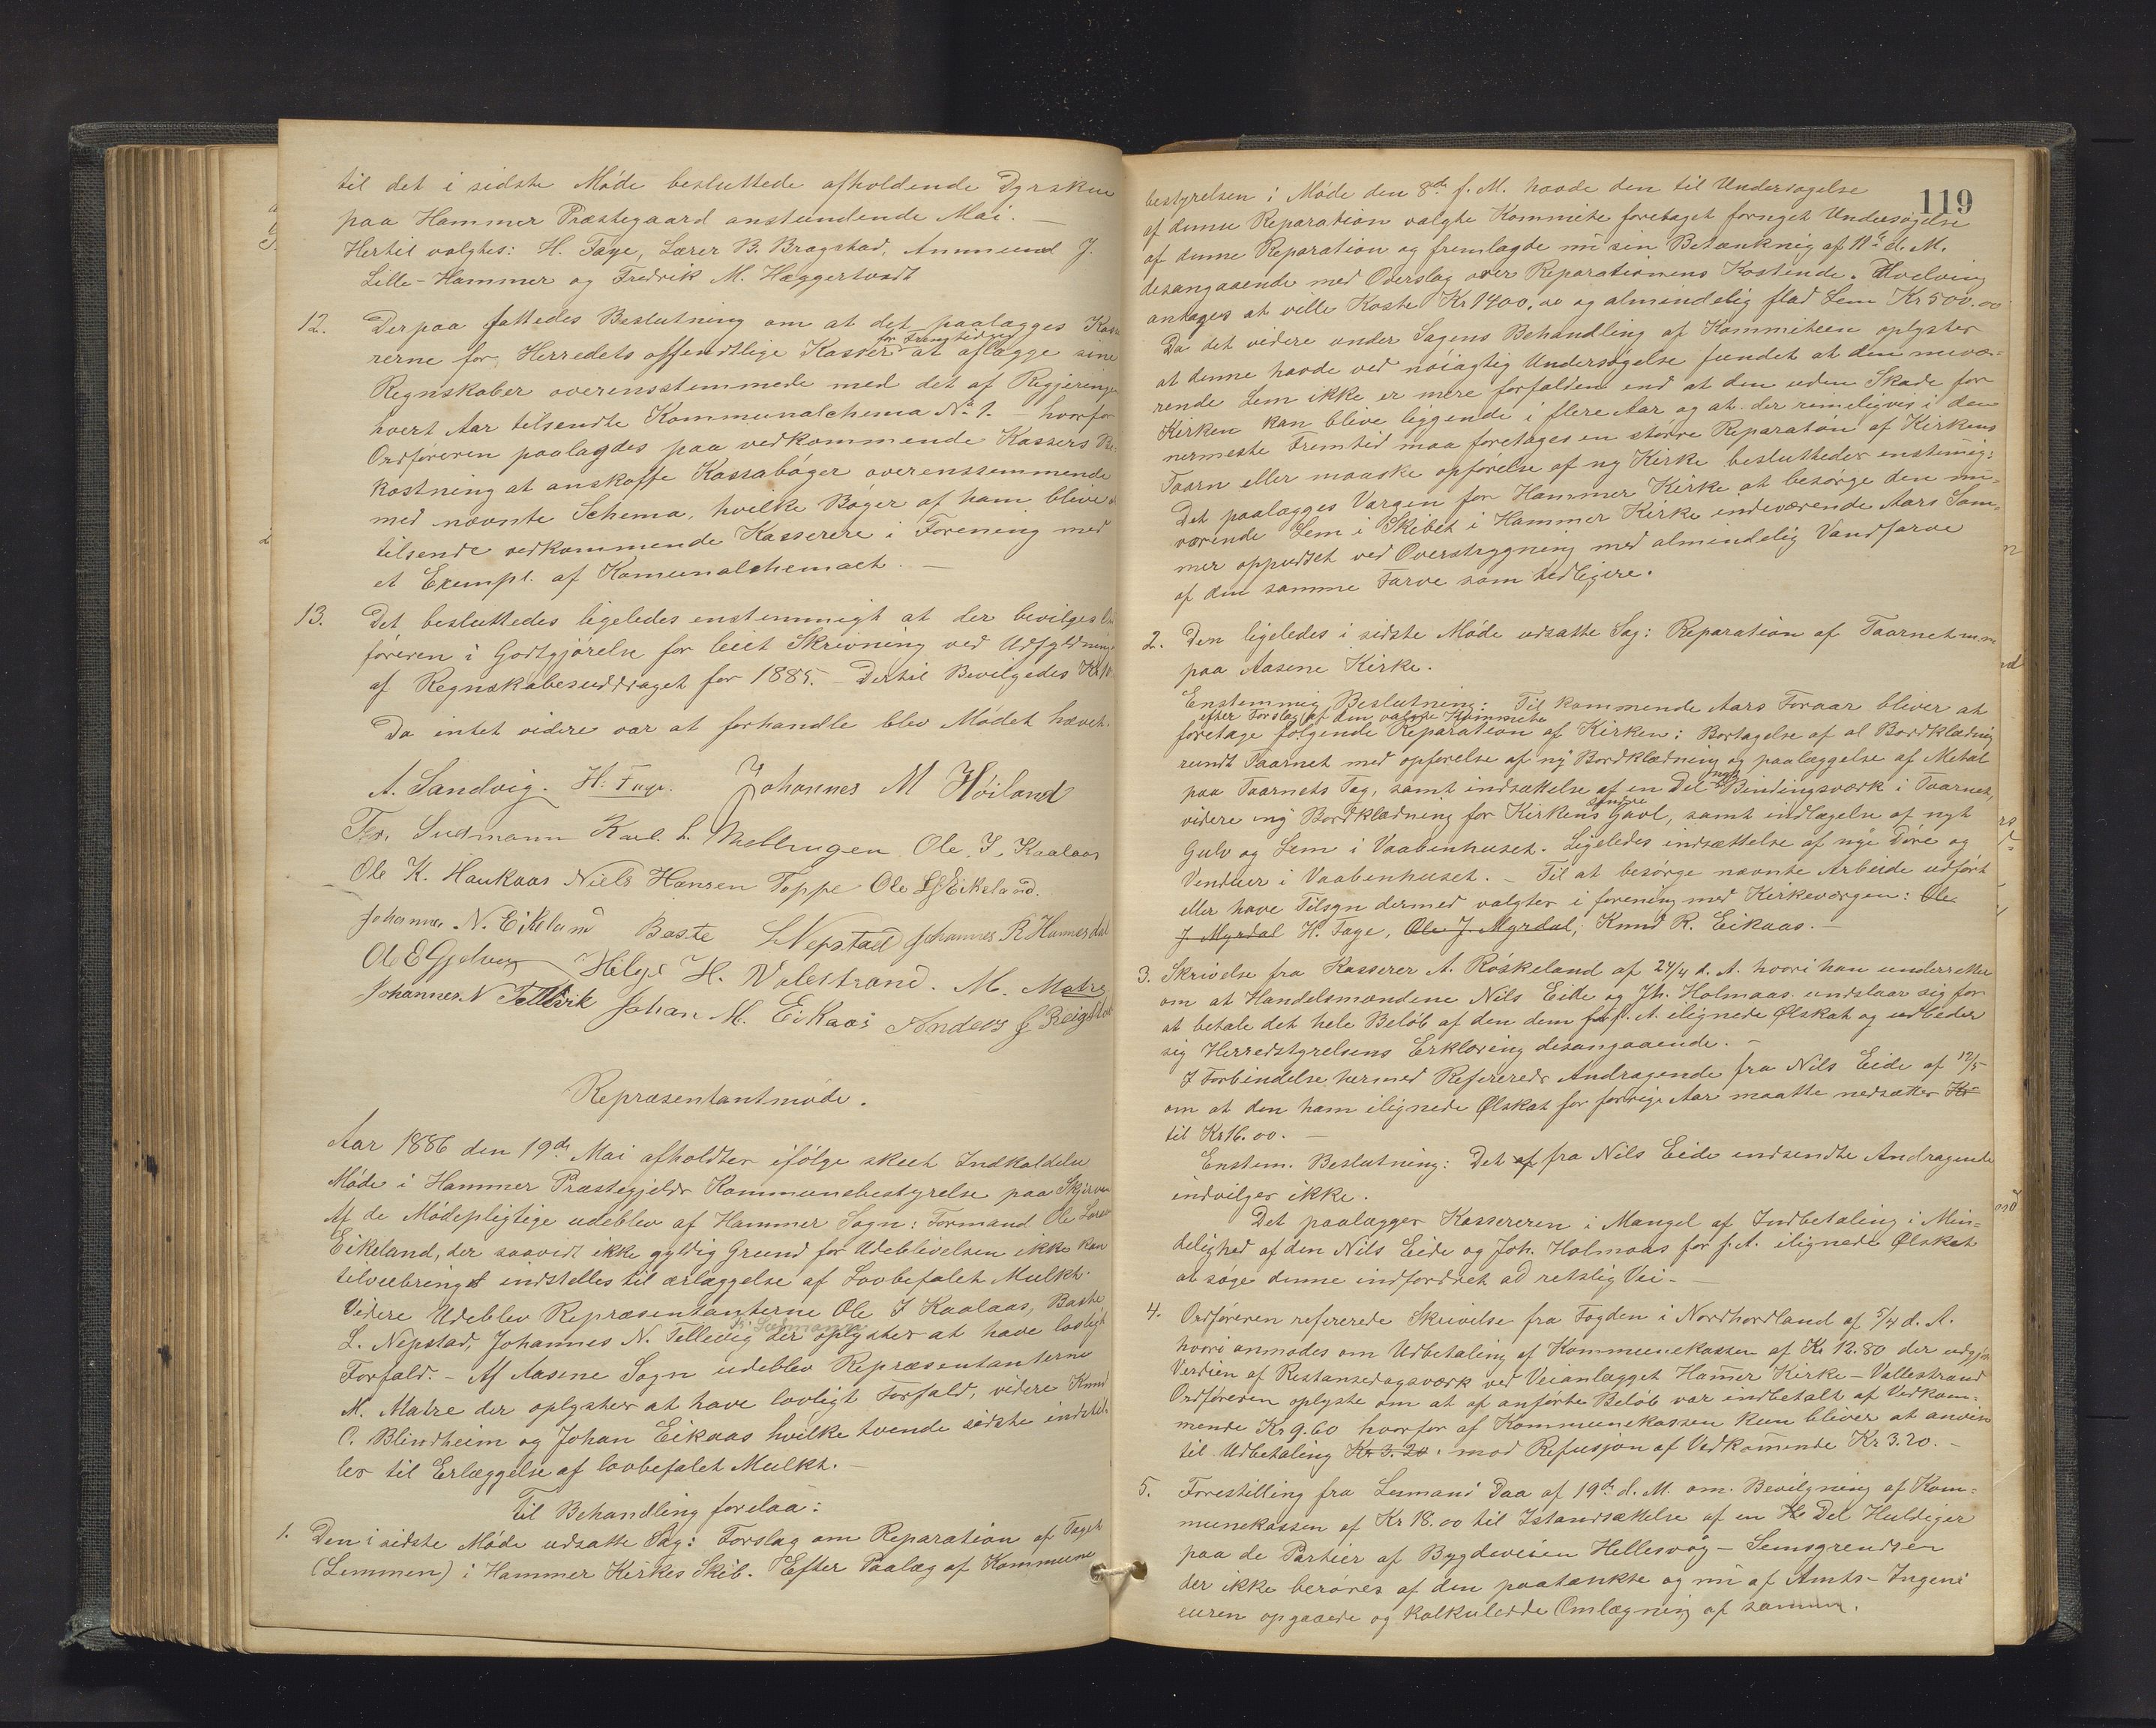 til det i sidste Møde besluttede afholdende Dyrskue
paa Hammer Præstegaard anstundende Mai. —
Hertil valgtes: H. Faye, Lærer B. Bragstad, Ammund J.
Lille-Hammer og Fredrik M. Hæggertvedt
12. Derpaa fattedes Beslutning om at det paalægges Kasse
rerne for Herredets offendtlige Kasser for Fremtiden at aflægge sine
Regnskaber overensstemmede med det af Regjeringen
hvert Aar tilsendte Kommunalschema No 1. — hvorfor
Ordføreren paalagdes paa vedkommende Kassers Be-
kostning at anskaffe Kassabøger overenssemmende
med nævnte Schema, hvilke Bøger af ham bliver
tilsende vedkommende Kasserere i Forening med
et Exempl. af Komunalchemaet. —
13. Det besluttedes ligeledes enstemmigt at der bevilges Ord
føreren i Godtgjørelse for leiet Skrivning ved Udfyldning
af Regnskabsuddraget for 1885. — Dertil Bevilgedes Kr 10
Da intet videre var at forhandle blev Mødet hævet.
A. Sandvig. H. Faye. Johannes M Høiland
Fr. Sudmann Karl. L. Mellingen Ole. J. Kaalaas
Ole K. Haukaas Niels Hansen Toppe Ole LS Eikeland.
Johannes N. Eikeland Baste L Nepstad Johannes R Hannesdal
Ole E Gjelvey Helge H. Valestrand. M. Matre
Johannes N Tellevik Johan M. Eikaas Anders J Beigstad
Repræsentantmøde.
Aar 1886 den 19de Mai afholdtes ifølge skeet Indkaldelse
Møde i Hammer Præstegjelds Kommunebestyrelse paa Skjerven
Af de Mødepligtige udeblev af Hammer Sogn: Formand Ole Larsen
Eikeland, der saavidt ikke gyldig Grund for Udeblivelsen ikke kan
tilveiebringes indstilles til ærlæggelse af Lovbefalet Mulkt.
Videre Udeblev Repræsentanterne Ole J Kaalaas, Baste
L. Nepstad, Johannes N. Tellevig Fr. Sudmann der oplystes at have lovligt
Forfald. — Af Aasene Sogn udeblev Repræsentanterne
M. Matre der oplystes at have lovligt Forfald, videre Knud
C. Blindheim og Johan Eikaas hvilke tvende sidste indstil
les til Erlæggelse af lovbefalet Mulkt. —
Til Behandling forelaa:
1. Den i sidste Møde udsatte Sag: Forslag om Reparation af Taget
(Lemmen) i Hammer Kirkes Skib. Efter Paalæg af Kommune
119
bestyrelsen i Møde den 8de f. M. havde den til Undersøgelse
af denne Reparation valgte Kommite foretaget fornyet Undersøgelse
af denne Reparation og fremlagde nu sin Betænknig af 11te d. M.
desangaaende med Overslag over Reparationens Kostende. Hvelving
antages at ville Koste Kr 1400.00 og almindelig flad Lem Kr 500.00
Da det videre under Sagens Behandling af Kommiteen oplystes
at denne havde ved nøiagtig Undersøgelse fundet at den nuvæ-
rende Lem ikke er mere forfalden end at den uden Skade for
Kirken kan blive liggende i flere Aar og at der rimeligvis i den
nermeste Fremtid maa foretages en større Reparation af Kirkens
Taarn eller maaske opførelse af ny Kirke besluttedes enstemig:
Det paalægges Værgen for Hammer Kirke at besørge den nu-
værende Lem i Skibet i Hammer Kirke indeværende Aars Som-
mer oppudset ved Overstrygning med almindelig Vandfarve
af den samme Farve som tidligere.
2. Den ligeledes i sidste Møde udsatte Sag: Reparation af Taarnet m.m
paa Aasene Kirke.
Enstemmig Beslutning: Til kommende Aars Foraar bliver at
efter Forslag af den valgte Kommite
foretage følgende Reparation af Kirken: Bortagelse af al Bordklædnig
rundt Taarnet med opførelse af ny Bordklædning og paalæggelse af Metal
paa Taarnets Tag, samt indsættelse af en Del nyt Bindingsværk i Taarnet,
videre ny Bordklædning for Kirkens søndre Gavl, samt indlægelse af nyt
Gulv og Lem i Vaabenhuset. Ligeledes indsættelse af nye Døre og
Venduer i Vaabenhuset. — Til at besørge nævnte Arbeide udført
eller have Tilsyn dermed valgtes i forening med Kirkeværgen: Ole
J. Myrdal H. Faye, Ole J. Myrdal, Knud R. Eikaas. —
3. Skrivelse fra Kasserer A. Røskeland af 24/4 d. A. hvori han underretter
om at Handelsmændene Nils Eide og Jh. Holmaas undslaar sig for
at betale det hele Beløb af den dem for f. A. ilignede Ølskat og udbeder
sig Herredstyrelsens Erklæring desangaaende. —
I Forbindelse hermed Refereredes Andragende fra Nils Eide af 12/5
om at den ham ilignede Ølskat for forrige Aar maatte nedsættes Kr
til Kr 16.00. —
Enstem. Beslutning: Det af fra Nils Eide indsendte Andragende
indvilges ikke.
Det paalægges Kassereren i Mangel af Indbetaling i Min-
delighed af den Nils Eide og Joh. Holmaas for f. A. ilignede Ølskat
at søge denne indfordret ad retslig Vei. —
4. Ordføreren refererede Skrivelse fra Fogden i Nordhordland af 5/4 d. A.
hvori anmodes om Udbetaling af Kommunekassen af Kr 12.80 der udgjør
Verdien af Restansedagsværk ved Veianlægget Hamer Kirke — Vallestrand
Ordføreren oplyste om at af anførte Beløb var indbetalt af Vedkom-
mende Kr 9.60 hvorfor af Kommunekassen kun bliver at anvise
til Udbetaling Kr 3.20. mod Refusjon af Vedkomende Kr 3.20. —
5. Forestilling fra Lesmand Daa af 19de d. M. om Bevilgning af Kom-
munekassen af Kr 18.00 til Istandsættelse af en Del Huldiger
paa de Partier af Bygdeveien Hellesvåg — Semsgrendsen
der ikke berøres af den paatænkte og nu af Amts-Ingeni
euren opgaaede og kalkulerede Omlægning af samme.